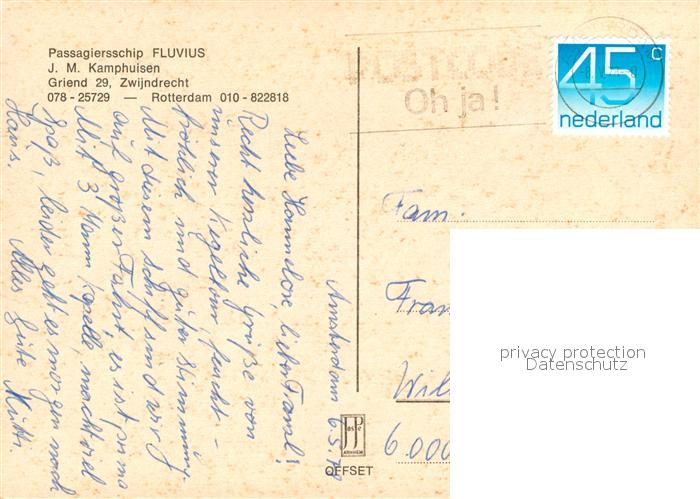 Passagiersschip FLUVIUS
J. M. Kamphuisen
Griend 29, Zwijndrecht
078 - 25729 — Rotterdam 010 - 822818
Oh ja!
45 c
nederland
Amsterdam 6.5.
Liebe Hannelore, lieber
Recht herzliche Grüße von
unserer Kegeltour feucht -
fröhlich und guter Stimmung.
Mit diesem Schiff sind wir
auf großer Fahrt, es ist prima
Mit 3 Mann Kapelle, macht viel
Spaß, leider geht es morgen nach
Haus. Alles Gute Mutti.
Fam.
Fran
Wil
6000
JosPé
ARNHEM
OFFSET
privacy protection
Datenschutz